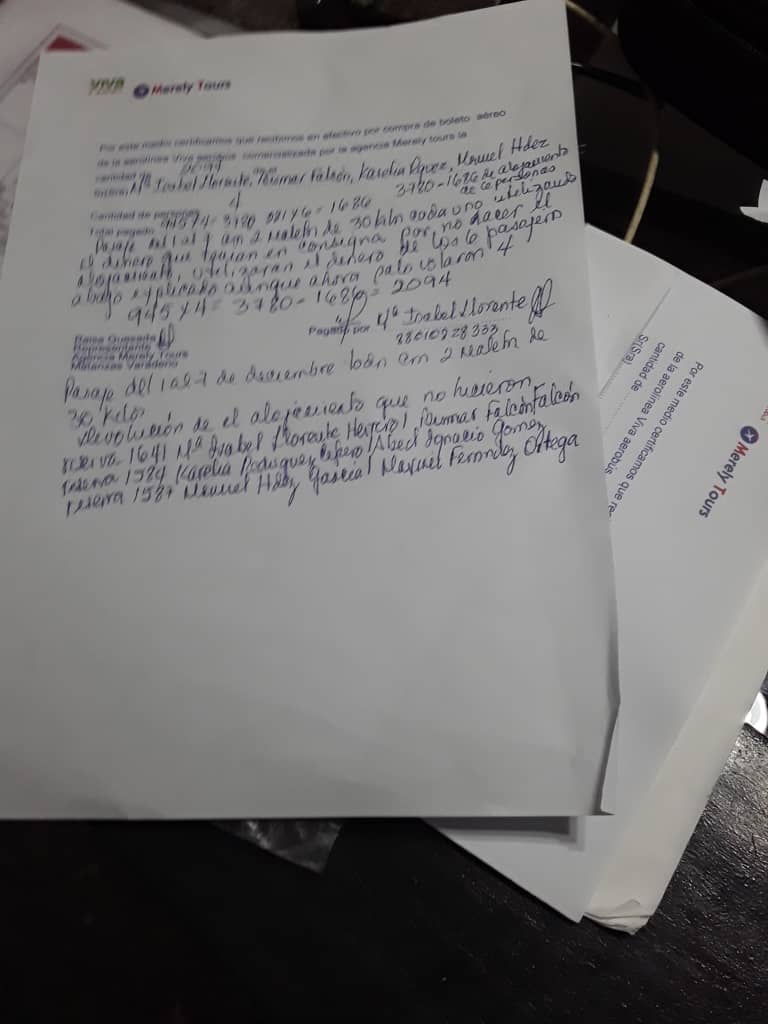 VIVA Merely Tours
Por este medio certificamos que recibimos en efectivo por compra de boleto aéreo
de la aerolínea Viva aerobus comercializada por la agencia Merely tours la
cantidad de 2094
Mª Isabel Llorente, Karelia Manuel Hdez
Cantidad de personas 4 3780-1686 de alojamiento
Total pagado 945x4=3780 x6=1686 de 6 personas
Pasaje del 1 al 7 con 2 maletin de 30 kiln cada uno utilizando
el dinero que tenian en consigna por no hacer el
alojamiento, utilizaran el dinero de los 6 pasajero
abajo explicado aunque ahora solo volaron 4
945x4=3780-1686=2094
Pagado por Mª Isabel Llorente
Raisa Quesada
Representante
Agencia Merely Tours
Matanzas Varadero
Pasaje del 1 al 7 de diciembre con 2 maletin de
30 Kilos
devolución de el alojamiento que no hicieron
reserva 1641 Mª Isabel Llorente Herrero Falcón Falcón
reserva 1584 Karelia Rodriguez Abed Ignacio Gomez
reserva 1587 Manuel Hdez Garcia Ortega
Merely Tours
Por este medio certificamos que
de la aerolínea Viva aerobus
cantidad de
Sr(Sra)